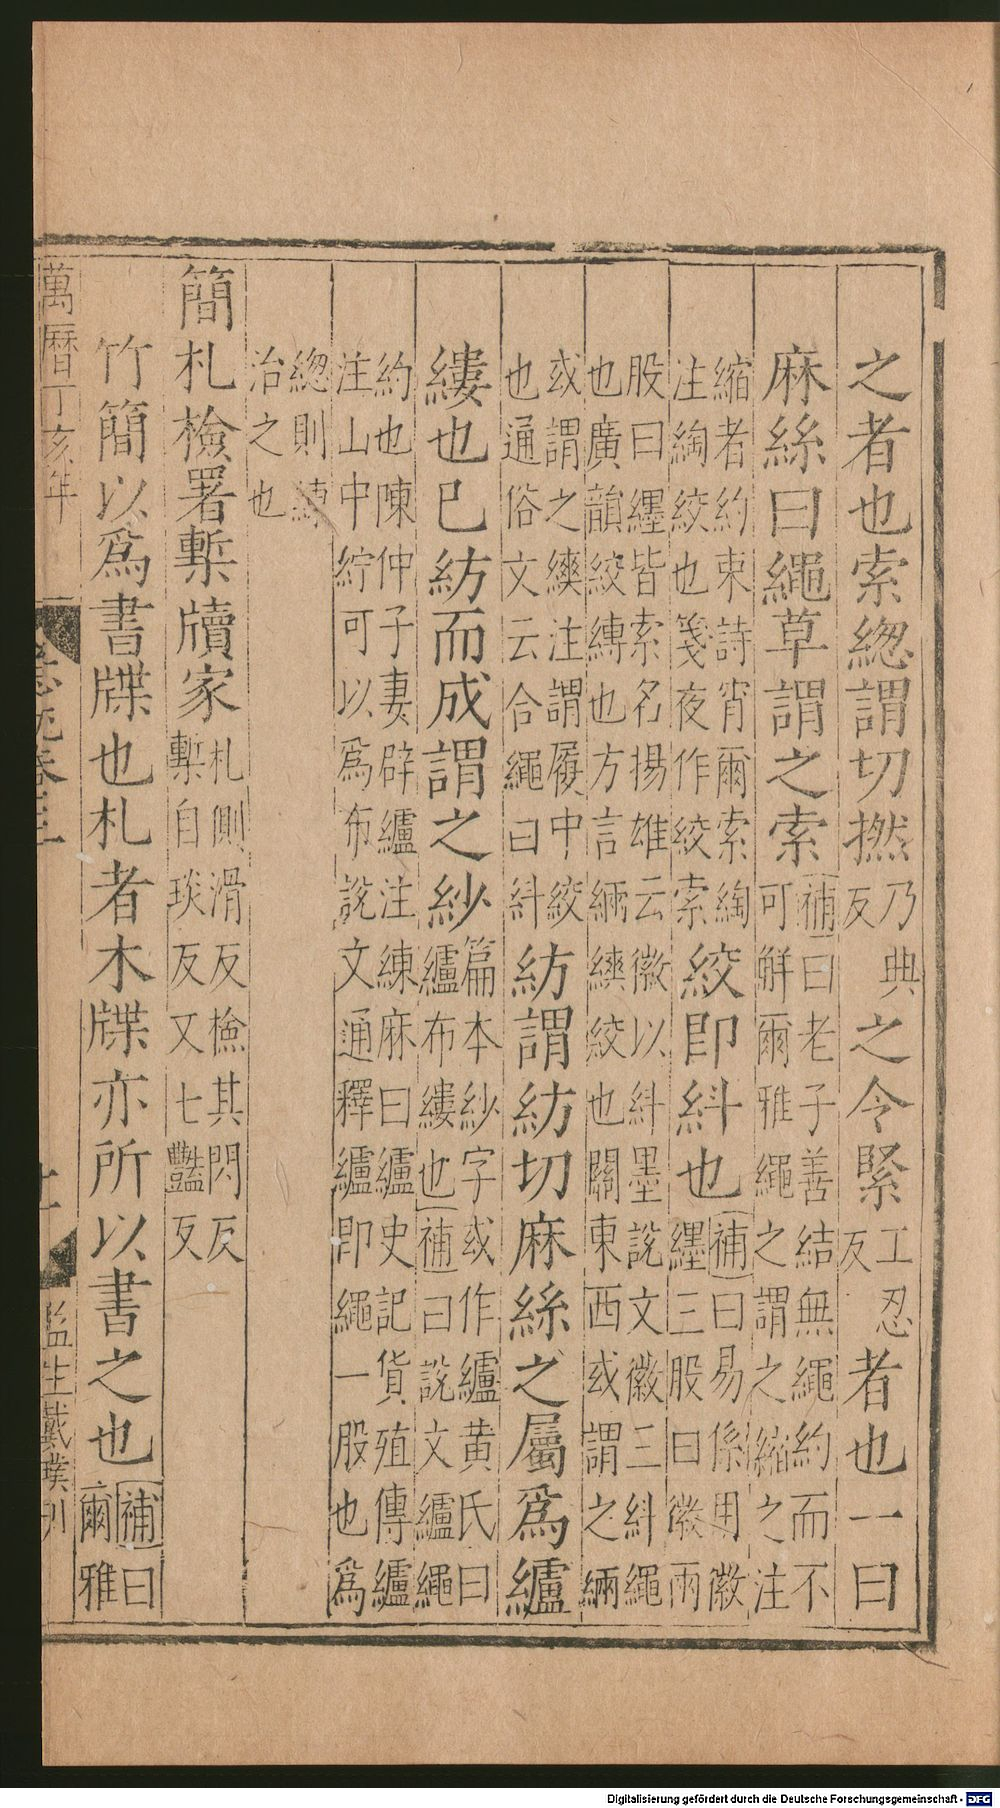 之者也索緫謂切撚乃典反之令緊工忍反者也一曰
麻絲曰繩草謂之索補曰老子善結無繩約而不
可解爾雅繩之謂之縮之注
縮者約束詩宵爾索綯
注綯絞也箋夜作絞索絞即糾也補曰易係用徽
纆三股曰徽兩
股曰纆皆索名揚雄云徽以糾墨說文徽三糾繩
也廣韻絞縛也方言緉緛絞也關東西或謂之緉
或謂之緛注謂履中絞
也通俗文云合繩曰糾紡謂紡切麻絲之屬爲纑
縷也已紡而成謂之紗篇本紗字或作纑黄氏曰
纑布縷也補曰說文纑繩
約也陳仲子妻辟纑注練麻曰纑史記貨殖傳纑
注山中紵可以爲布說文通釋纑即繩一股也爲
緫則
治之也
簡札檢署槧牘家札側滑反檢其閃反
槧自琰反又七豔反
竹簡以爲書牒也札者木牒亦所以書之也補曰
爾雅
萬曆丁亥年
急就卷三
監生戴璞刊
Digitalisierung gefördert durch die Deutsche Forschungsgemeinschaft - DFG